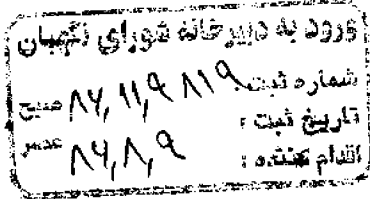 ورود به دبیرخانه شورای نگهبان
شماره ثبت:
صبح
تاریخ ثبت: ۸۶,۸,۹
عصر
اقدام کننده: